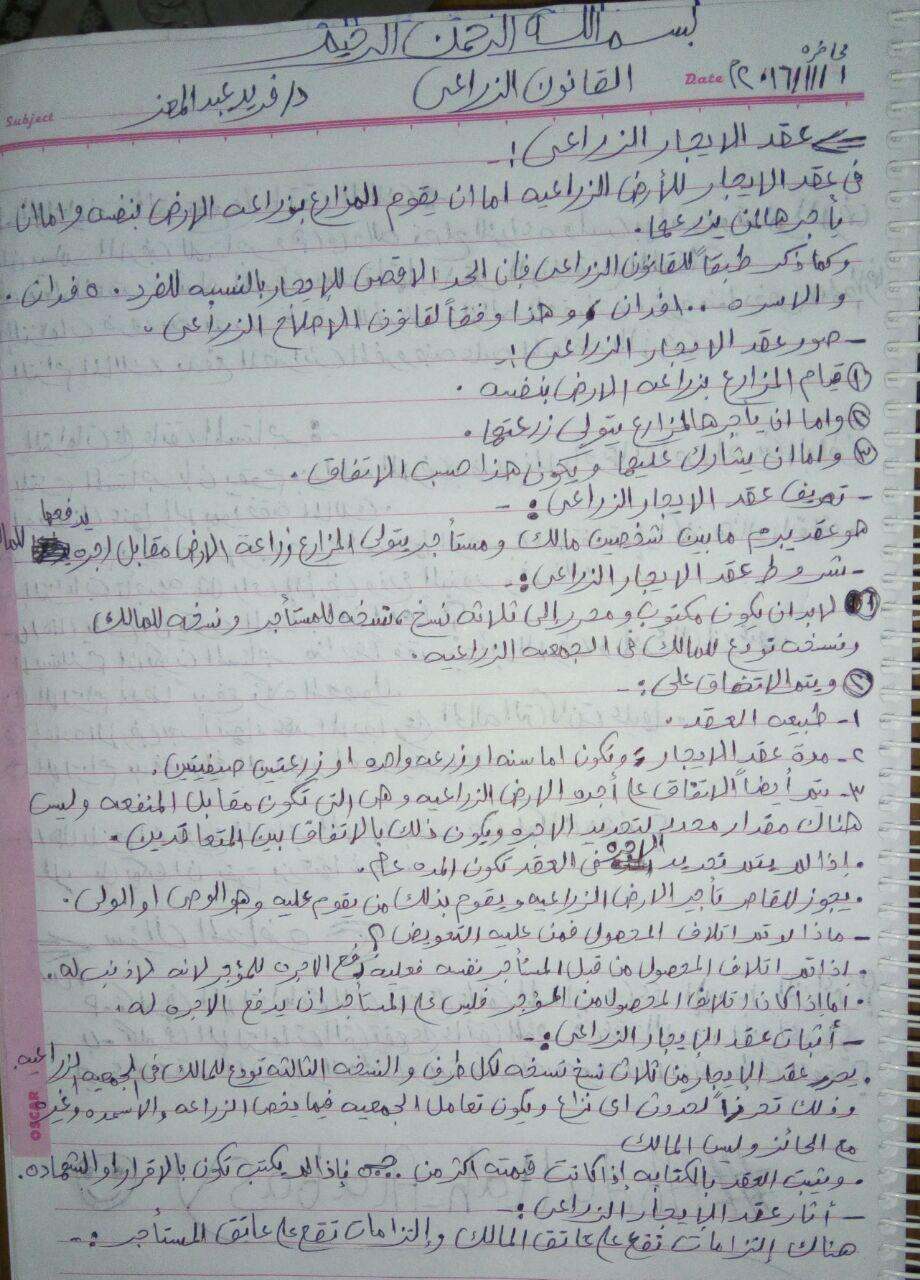 بسم الله الرحمن الرحيم
محاضرة
Date ١ / ١١ / ٢٠١٦ م
القانون الزراعى
د/ فريد عبد المعز
Subject
عقد الايجار الزراعى :-
فى عقد الايجار للأرض الزراعيه اما ان يقوم المزارع بزراعه الارض بنفسه و اما ان
يأجرها لمن يزرعها.
وكما ذكر طبقاً للقانون الزراعى فإن الحد الاقصى للإيجار بالنسبه للفرد ٥٠ فدان.
و الاسره ١٠٠ فدان ، وهذا وفقاً لقانون الإصلاح الزراعى .
- صور عقد الايجار الزراعى :-
١ قيام المزارع بزراعه الارض بنفسه .
٢ واما ان يأجرها لمزارع يتولى زرعتها .
٣ واما ان يشارك عليها ويكون هذا حسب الاتفاق .
- تعريف عقد الايجار الزراعى :-
هو عقد يبرم ما بين شخصين مالك ومستأجر يتولى المزارع زراعة الارض مقابل اجره يدفعها للمالك
- شروط عقد الايجار الزراعى :-
١ لابد ان يكون مكتوب و محرر الى ثلاثه نسخ ، نسخه للمستأجر و نسخه للمالك
ونسخه تودع للمالك فى الجمعيه الزراعيه .
٢ ويتم الاتفاق على :-
١- طبيعه العقد .
٢- مدة عقد الايجار ; وتكون اما سنه او زرعه واحده او زرعتين صيفيتين .
٣- يتم أيضاً الاتفاق على أجره الارض الزراعيه و هى التى تكون مقابل المنفعه وليس
هناك مقدار محدد لتحديد الاجره ويكون ذلك بالاتفاق بين المتعاقدين .
. إذا لم يتم تحديد الاجره فى العقد تكون المده عام .
. يجوز للقاصر تأجير الارض الزراعيه و يقوم بذلك من يقوم عليه وهو الوصى او الولى .
- ماذا لو تم اتلاف المحصول فمن عليه التعويض ؟
. إذا تم اتلاف المحصول من قبل المستأجر نفسه فعليه دفع الاجره للمؤجر لانه لا ذنب له .
. اما إذا كان اتلاف المحصول من المؤجر فليس على المستأجر ان يدفع الاجره له .
- أثبات عقد الإيجار الزراعى :-
. يحرر عقد الإيجار من ثلاث نسخ نسخه لكل طرف و النسخه الثالثه تودع للمالك فى الجمعيه الزراعيه
وذلك تحرزاً لحدوث اى نزاع ويكون تعامل الجمعيه فيما يخص الزراعه والاسمده وغيره
مع الحائز وليس المالك
. ويثبت العقد بالكتابه إذا كانت قيمته اكثر من فإذا لم يكتب تكون بالاقرار او الشهاده .
- أثار عقد الإيجار الزراعى :-
هناك إلتزامات تقع على عاتق المالك وإلتزامات تقع على عاتق المستأجر :-
OSCAR